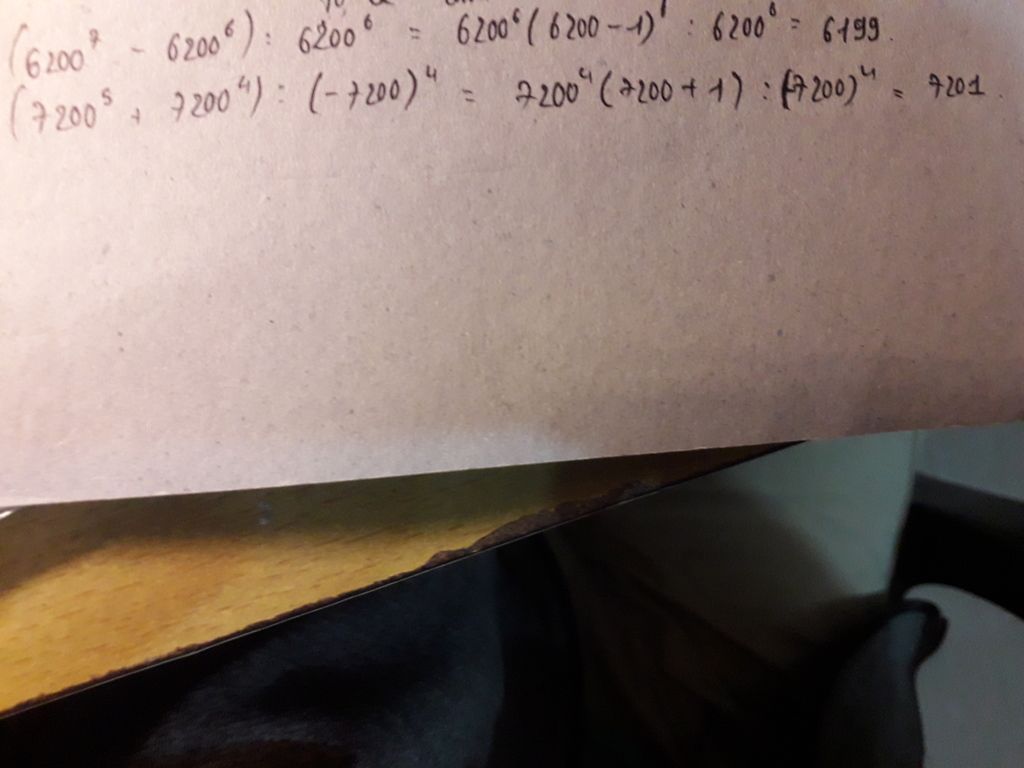 (6200⁷ - 6200⁶) : 6200⁶ = 6200⁶(6200-1) : 6200⁶ = 6199.
(7200⁵ + 7200⁴) : (-7200)⁴ = 7200⁴(7200+1) : (7200)⁴ = 7201.